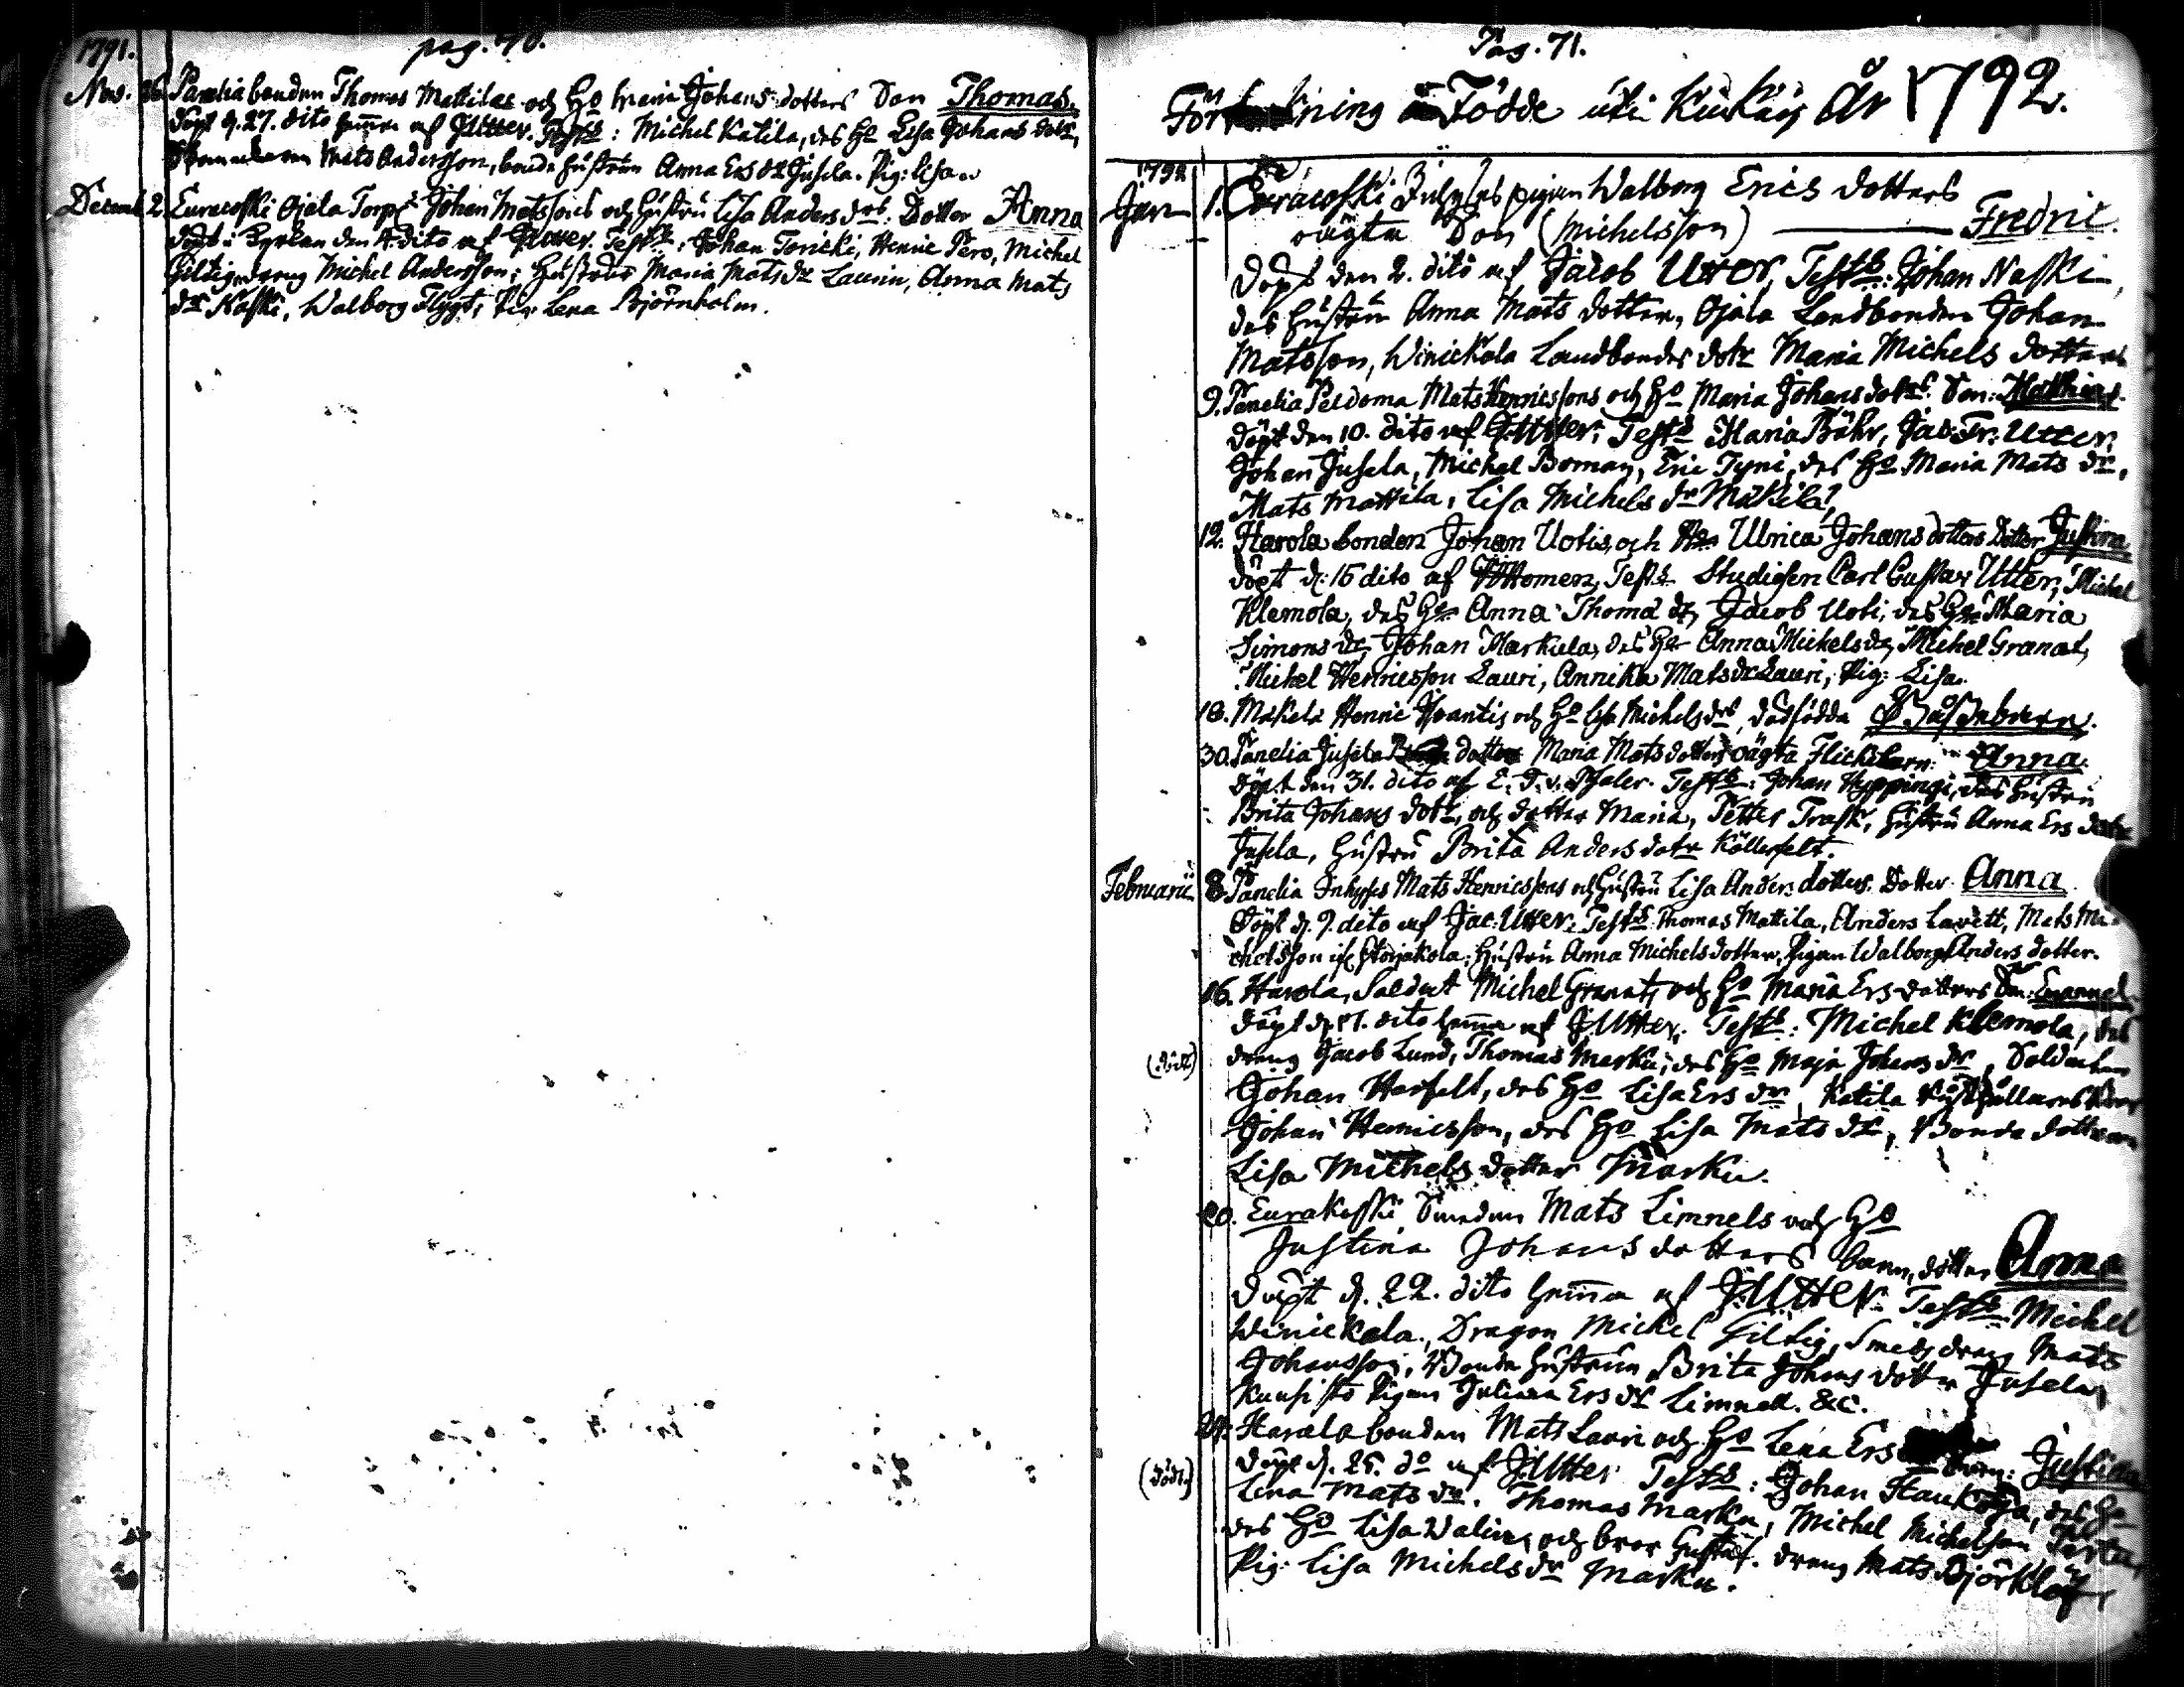 1791. pag. 70.
Nov. 26. Panelia bonden Thomas Mattilas och Ho Maria Johans dotters Son Thomas.
döpt d. 27. dito hema af J: Utter. Test: Michel Katila, des Ho Lisa Johans dotr,
Mats Andersson, bonde hustrun Anna Ers dr Jusela. Pig: Lisa
Decemb. 2. Euracoski Ojala Torp: Johan Matssons och hustru Lisa Anders drs. Dotter Anna
döpt i Kyrkan den 4. dito af Utter. Test: Johan Toricki, Henric Pero, Michel
Giltig, dreng Michel Andersson; Hustrur Maria Mats dr Laurin, Anna Mats
dr Naski, Walborg Flygt, Pig Lena Björnholm.
Pag. 71.
Förtekning å Födde uti Kiukais År 1792.
1792
Jan. 1. Euracoski pigan Walborg Erics dotters
oägta Son (Michelsson) Fredric.
döpt den 2. dito af Jacob Utter, Test: Johan Naski,
des hustru Anna Mats dotter, Ojala Landbonden Johan
Matsson, Winickala Landbondes dotr Maria Michels dotter
9. Panelia Peldoma Mats Henricssons och Ho Maria Johans dotrs. Son: Mathias.
döpt den 10. dito af J: Utter; Test: Maria Böhr, Jac: Fr: Utter,
Johan Jusela, Michel Boman, Eric Tyni, des Ho Maria Mats dr,
Mats Mattila, Lisa Michels dr Mäkilä,
12. Harola bonden Johan Uotis, och Ho Ulrica Johans dotters Dotter Justina
döpt d: 15 dito af Test: Studiosen Carl Gustav Utter, Michel
Klemola, des Ho Anna Thoma dr, Jacob Uoti, des Ho Maria
Simons dr, Johan Markula, des Ho Anna Mickels dr, Michel Granat,
Michel Henricsson Lauri, Annika Mats dr Lauri, Pig: Lisa.
18. Mäkelä Henric och Ho Lisa Michels drs dödfödda
30. Panelia Jusela dotter Maria Mats dotters oägta Flickebarn: Anna.
Döpt den 31. dito af Test: Johan Hyppingi, des hustru
Brita Johans dotr, och dotter Maria, Petter Trask, hustru Anna Ers dotr
Jusela, hustru Brita Anders dotr Köllerfelt.
Februarii 8. Panelia Inhyses Mats Henricssons och hustru Lisa Anders dotters. Dotter Anna
Döpt d. 9. dito af Jac: Utter. Test: Thomas Mattila, Anders Lavett, Mats Mi-
chelsson Hustru Anna Michels dotter, Pigan Walborg Anders dotter.
16. Harola, Soldat Michel Granat, och Ho Maria Ers dotters Son: Emanuel
döpt d. 17. dito hema af J: Utter. Test: Michel Klemola, des
(död) dreng Jacob Lund, Thomas Marku, des Ho Maja Johans dr, Soldaten
Johan Herfelt, des Ho Lisa Ers dr, Katila
Johan Henricsson, des Ho Lisa Mats dr, Bonde dottern
Lisa Michels dotter Marku.
20. Eurakoski Smeden Mats Limnels och Ho
Justina Johans dotters barn, dotter Anna
döpt d. 22. dito hema af J: Utter. Test: Michel
Winickala, Dragon Michel Giltig, Smeds dreng Mats
Johansson, Bonde hustrun Brita Johans dotter Jusela,
Kuusisto Pigan Juliana Ers dr Limnell. &c.
24. Harola bonden Mats Lauri och Ho Lena Ers barn: Justina
döpt d. 25. do af J: Utter Test: Johan Haukoja, des Ho
(död.) Lena Mats dr. Thomas Marku, Michel Michelsson
des Ho Lisa Walin, och bror Gustaf. dreng Mats Björklöf,
Pig: Lisa Michels dr Marku.